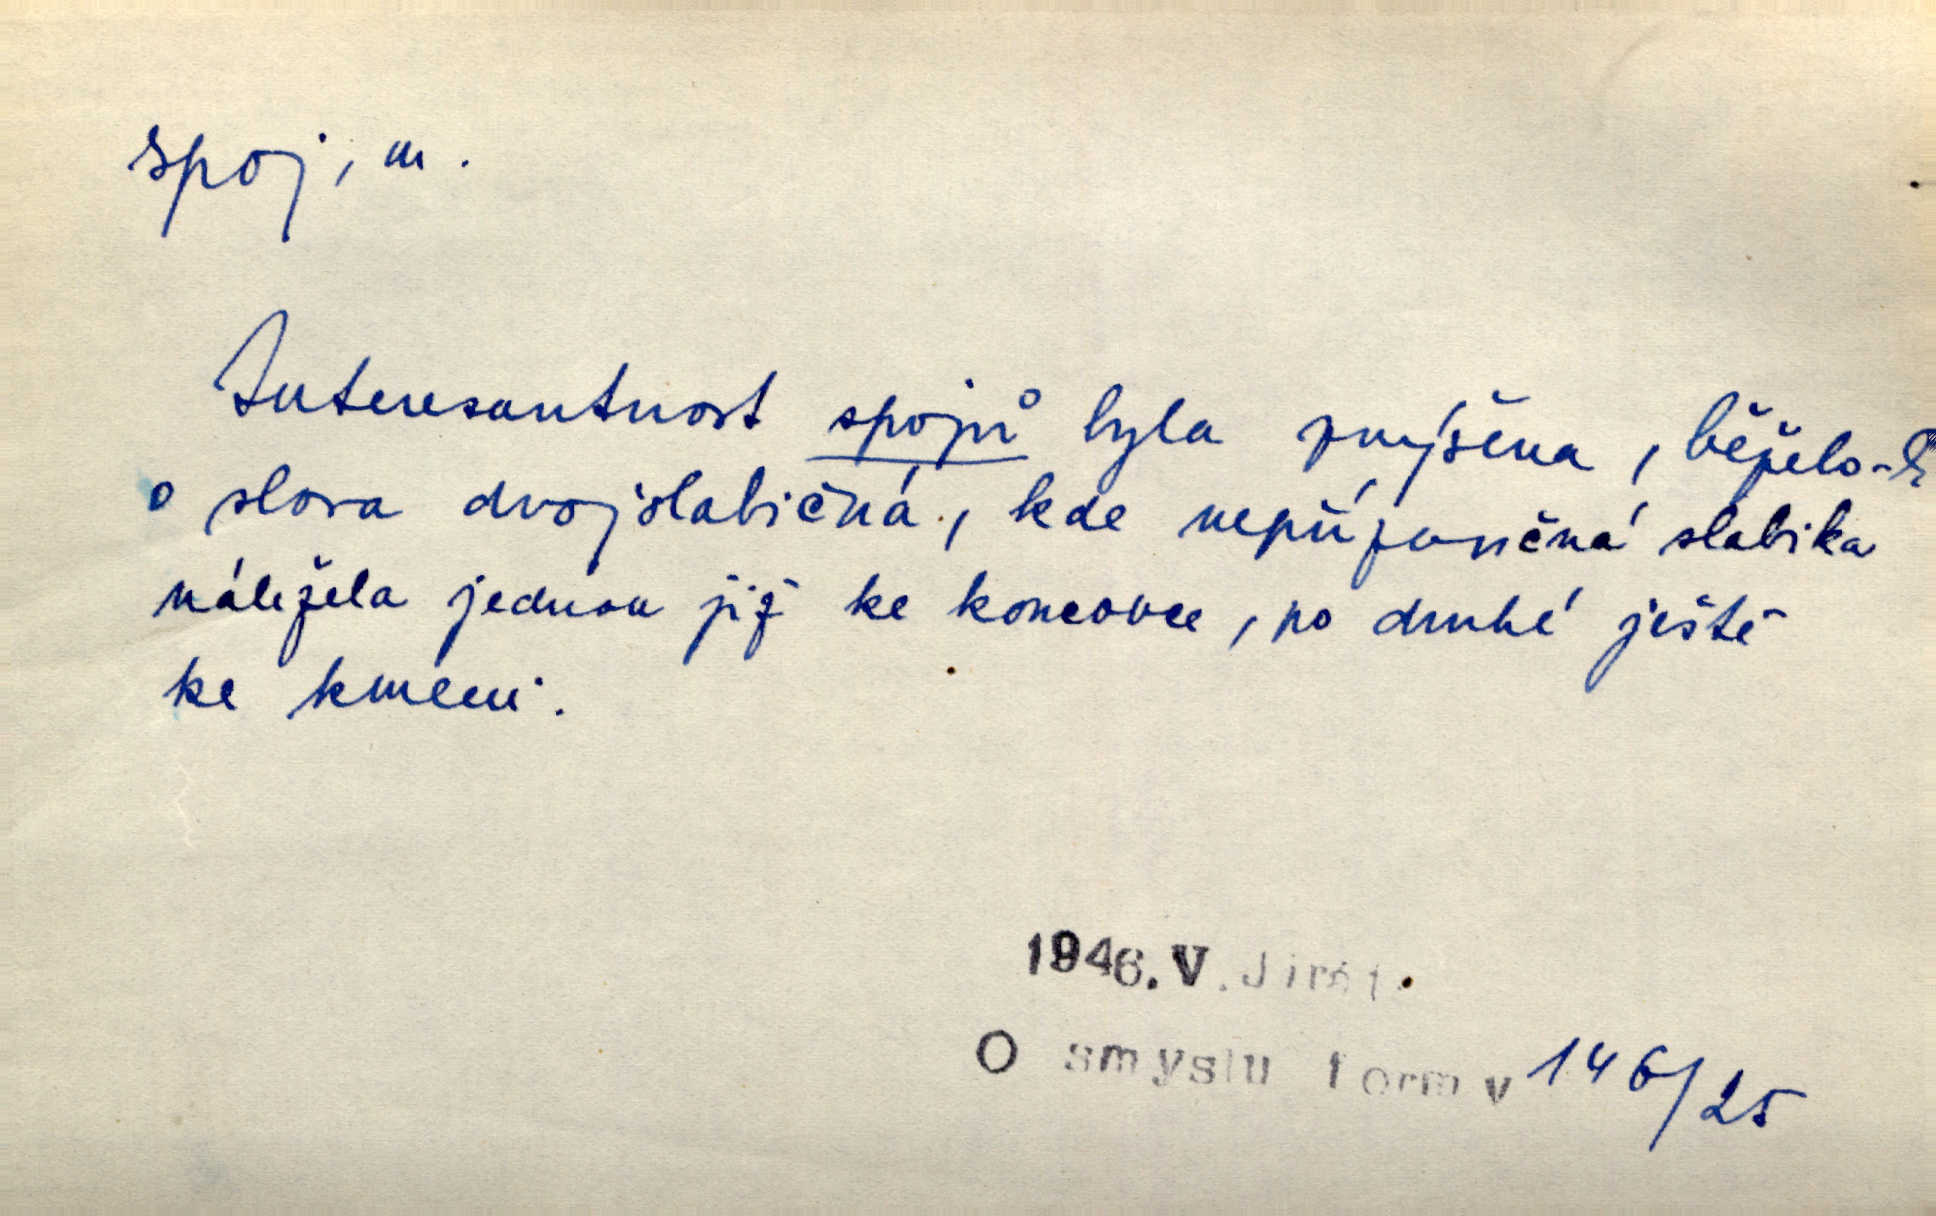 spoj, m.
Interesantnost spojů byla zvýšena, běželo-li
o slova dvojslabičná, kde nepřízvučná slabika
náležela jednou již ke koncovce, po druhé ještě
ke kmeni.
1946. V. Jirát.
O smyslu formy 146/25